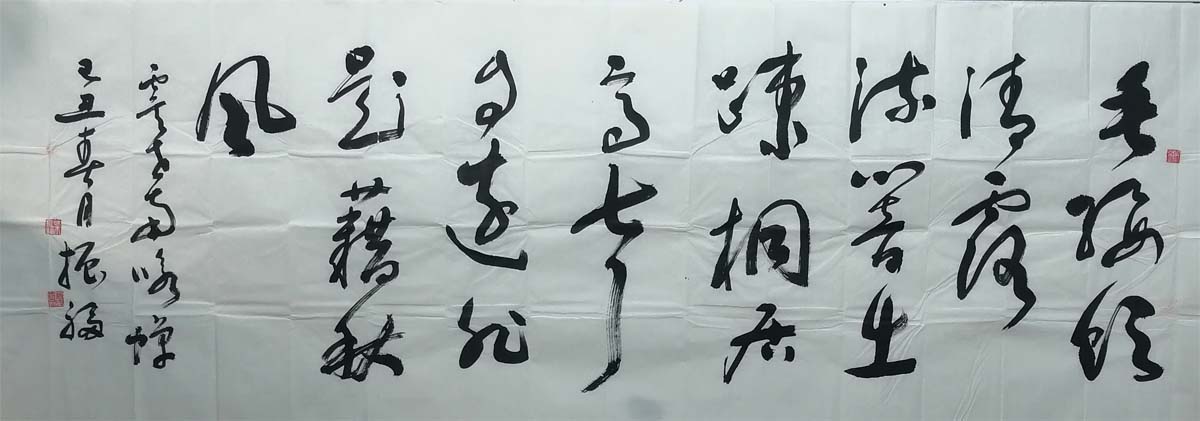 垂緌飲
清露
流響出
疎桐居
高聲
自遠非
是藉秋
風
虞世南咏蟬
己丑春月振福